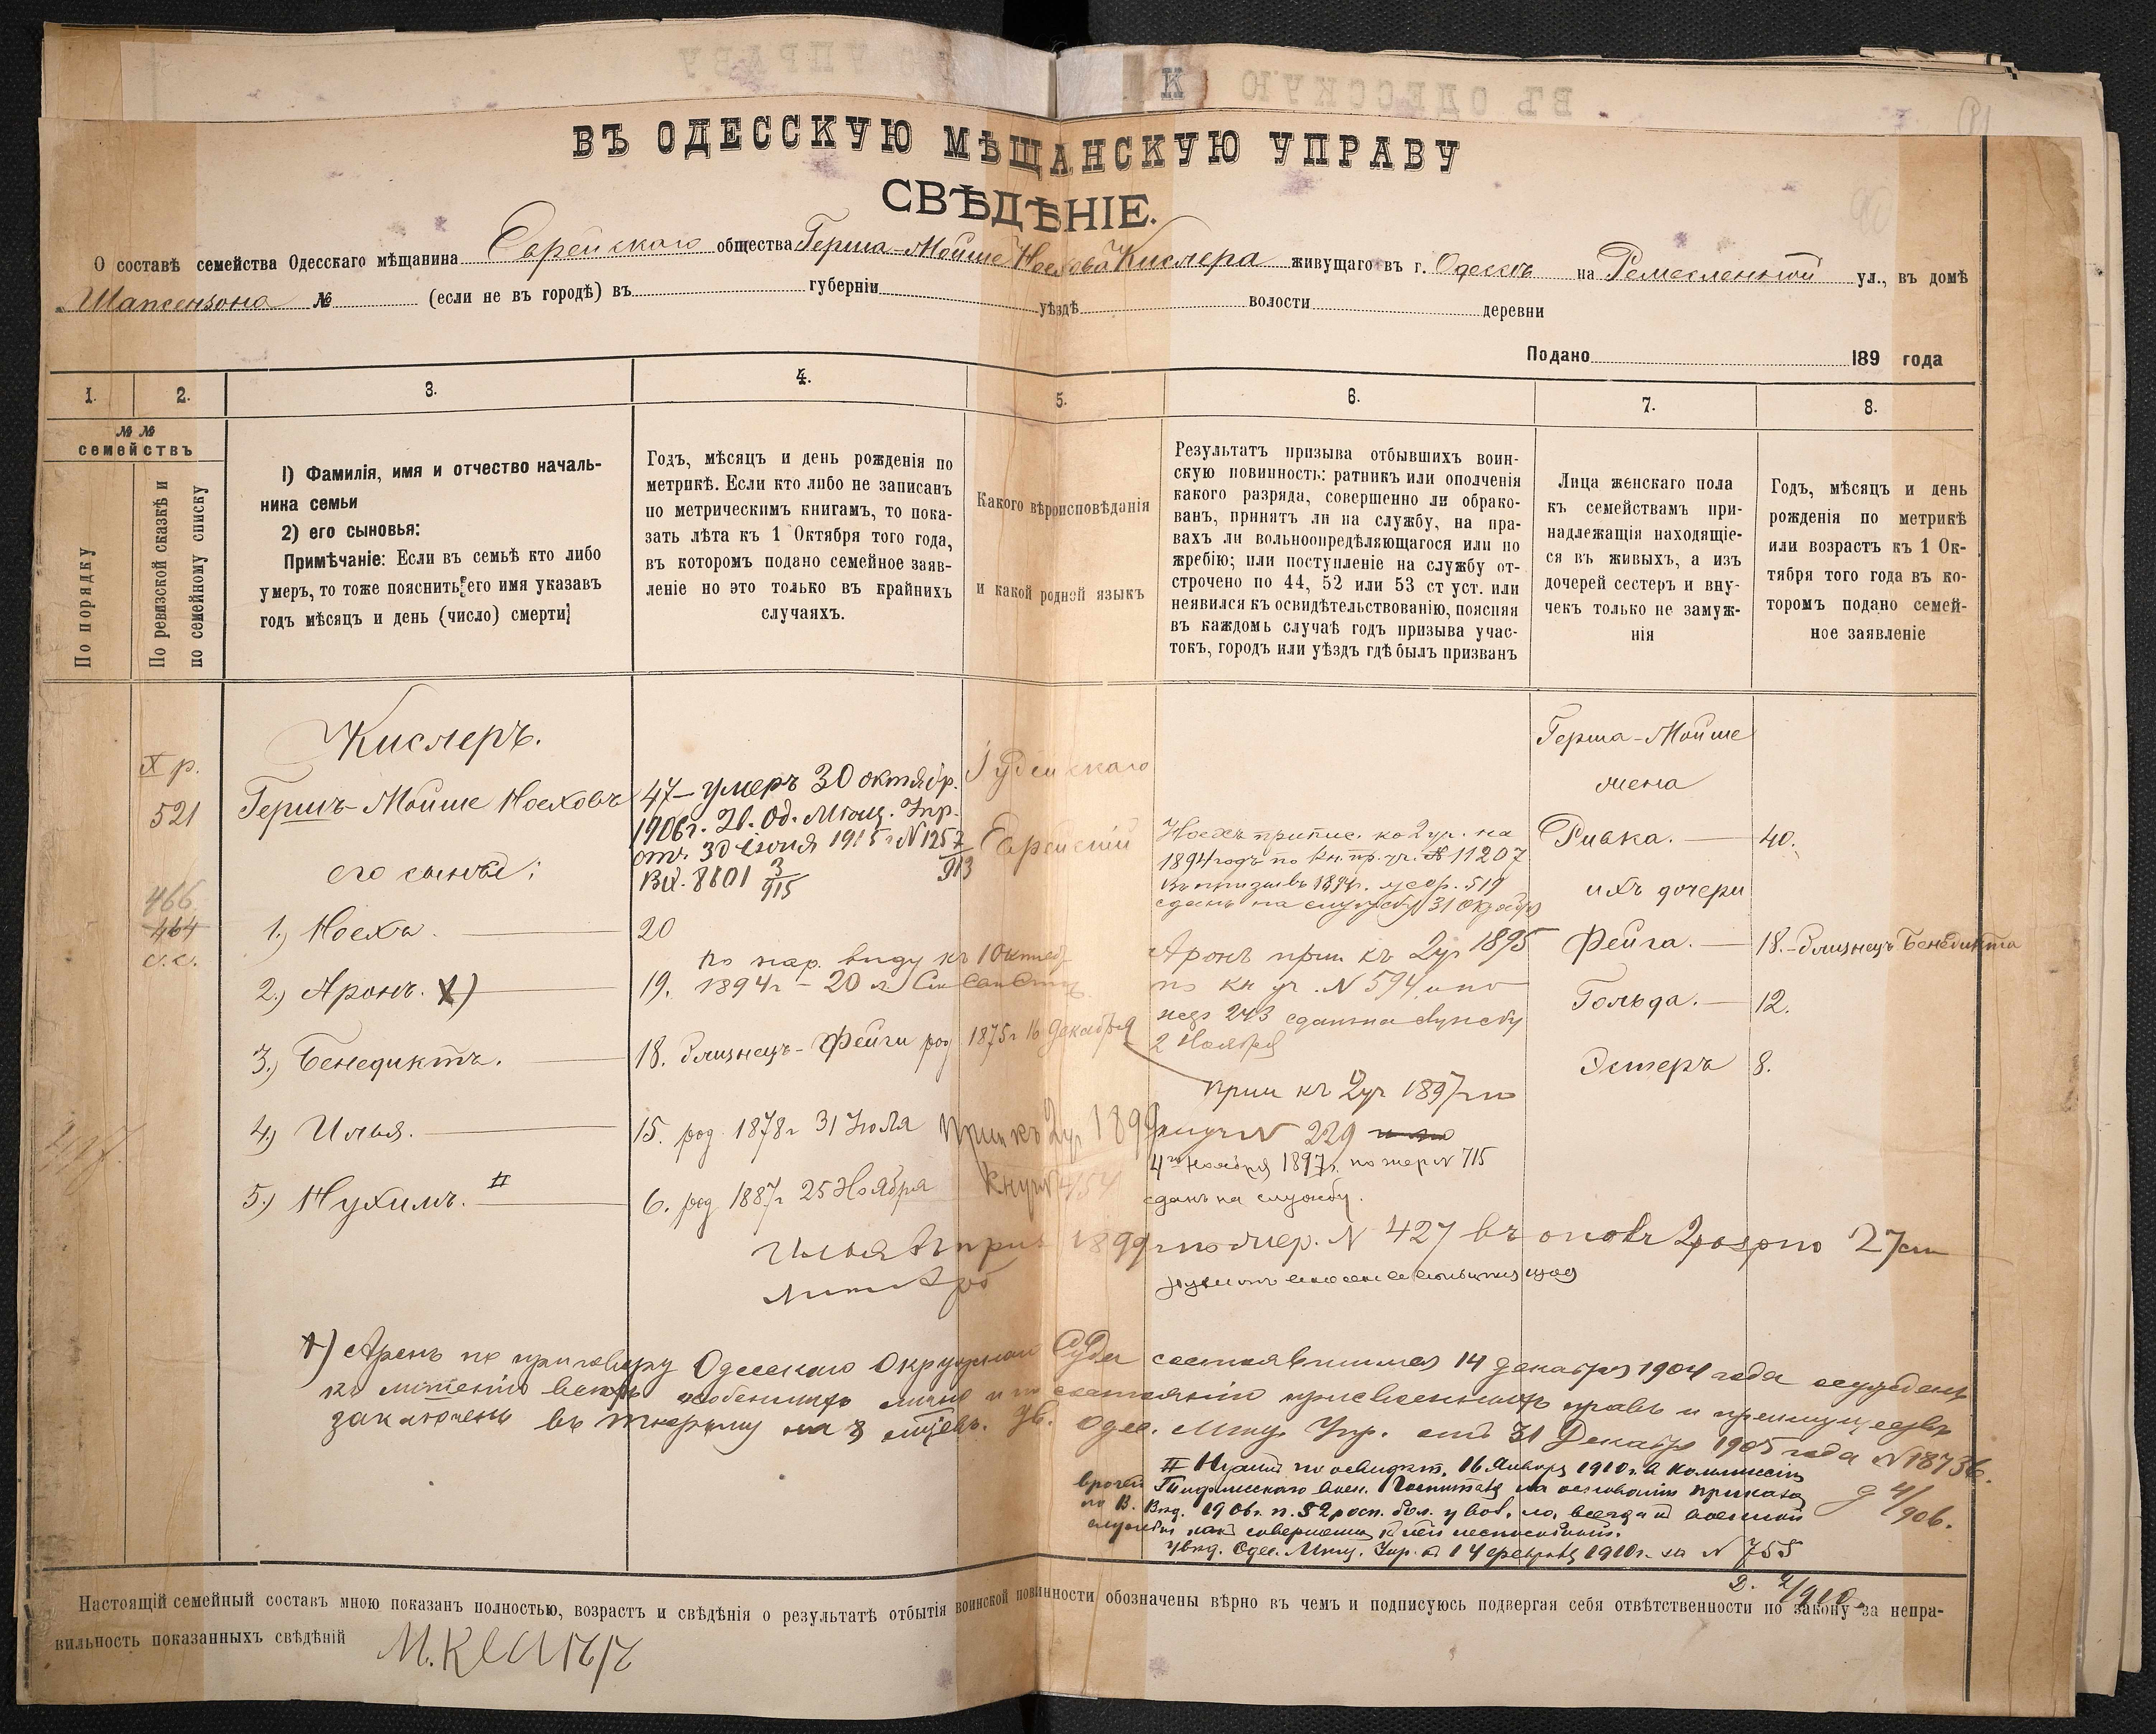 ВЪ ОДЕССКУЮ МѢЩАНСКУЮ УПРАВУ
СВѢДѢНІЕ.
О составѣ семейства Одесскаго мѣщанина Еврейскаго общества Герша-Мойше Ноехова Кислера живущаго въ г. Одессѣ на Ремесленной ул., въ домѣ
№ (если не въ городѣ) въ губерніи уѣздѣ волости деревни
Подано 189 года
1. 2. 3. 4. 5. 6. 7. 8.
№ №
семействъ
По порядку
По ревизской сказкѣ и
по семейному списку
1) Фамилія, имя и отчество началь-
ника семьи
2) его сыновья:
Примѣчаніе: Если въ семьѣ кто либо
умеръ, то тоже пояснить его имя указавъ
годъ мѣсяцъ и день (число) смерти
Годъ, мѣсяцъ и день рожденія по
метрикѣ. Если кто либо не записанъ
по метрическимъ книгамъ, то пока-
зать лѣта къ 1 Октября того года,
въ которомъ подано семейное заяв-
леніе но это только въ крайнихъ
случаяхъ.
Какого вѣроисповѣданія
и какой родной языкъ
Результатъ призыва отбывшихъ воин-
скую повинность: ратникъ или ополченія
какого разряда, совершенно ли обрако-
ванъ, принятъ ли на службу, на пра-
вахъ ли вольноопредѣляющагося или по
жребію; или поступленіе на службу от-
строчено по 44, 52 или 53 ст уст. или
неявился къ освидѣтельствованію, поясняя
въ каждомъ случаѣ годъ призыва учас-
токъ, городъ или уѣздъ гдѣ былъ призванъ
Лица женскаго пола
къ семействамъ при-
надлежащія находящіе-
ся въ живыхъ, а изъ
дочерей сестеръ и вну-
чекъ только не замуж-
нія
Годъ, мѣсяцъ и день
рожденія по метрикѣ
или возрастъ къ 1 Ок-
тября того года въ ко-
торомъ подано семей-
ное заявленіе
X р.
521
466
464
с.с.
Кислеръ.
Гершъ-Мойше Ноеховъ
его сынове:
1.) Ноехъ.
2.) Аронъ. X)
3.) Бенедиктъ.
4.) Илья.
5.) Нухимъ. II
47 – умеръ 30 октябр.
1906 г. Од. Мѣщ. Упр.
отъ 30 Іюня 1915 г. № 1257/913
Вх. 8601 3/915
20
по нар. виду къ 1 Октяб
19. 1894 г – 20 л
18. близнецъ – Фейги род 1875 г 16 декабря
15. род 1878 г 31 Іюля Прип къ 2 уч 1899
6. род 1887 г 25 Ноября
Іудейскаго
Еврейскій
Ноехъ припис. ко 2 уч. на
1894 годъ по кн. пр. уч. № 11207
въ призывъ 1894 г. жер. 519
сданъ на службу 31 Октября
Аронъ прип къ 2 уч 1895
по кн уч. № 594 и по
жер 243 сданъ на службу
2 Ноября
прип къ 2 уч 1897 г по
кн уч № 229
4го Ноября 1897 г. по жер № 715
сданъ на службу.
Герша-Мойше
жена
Ривка. — 40.
ихъ дочери
Фейга. — 18. – близнецъ Бенедикта
Гольда. — 12.
Эстеръ 8.
Илья въ приз 1899 г по жер. № 427 въ
X) Аронъ по приговору Одесскаго Окружнаго Суда состоявшимся 14 декабря 1904 года осужденъ
къ лишенію всѣхъ особенныхъ лично и по состоянію присвоенныхъ правъ и преимуществъ
заключенъ въ тюрьму на 8 мѣсяв. Ув. Одес. Мѣщ. Упр. отъ 31 Декабр 1905 года № 18736.
Д 4/906.
II Нухимъ по освидѣт. 16 Января 1910 г. въ Коммиссіи
врачей Тифлисскаго воен. Госпиталя на основаніи приказа
по В. Вѣд.
службы какъ совершенно къ ней неспособный.
увѣд. Одес. Мѣщ. Упр. отъ 14 февраля 1910 г. за № 755
Д. 2/910.
Настоящій семейный составъ мною показанъ полностью, возрастъ и свѣдѣнія о результатѣ отбытія воинской повинности обозначены вѣрно въ чемъ и подписуюсь подвергая себя отвѣтственности по закону за непра-
вильность показанныхъ свѣдѣній